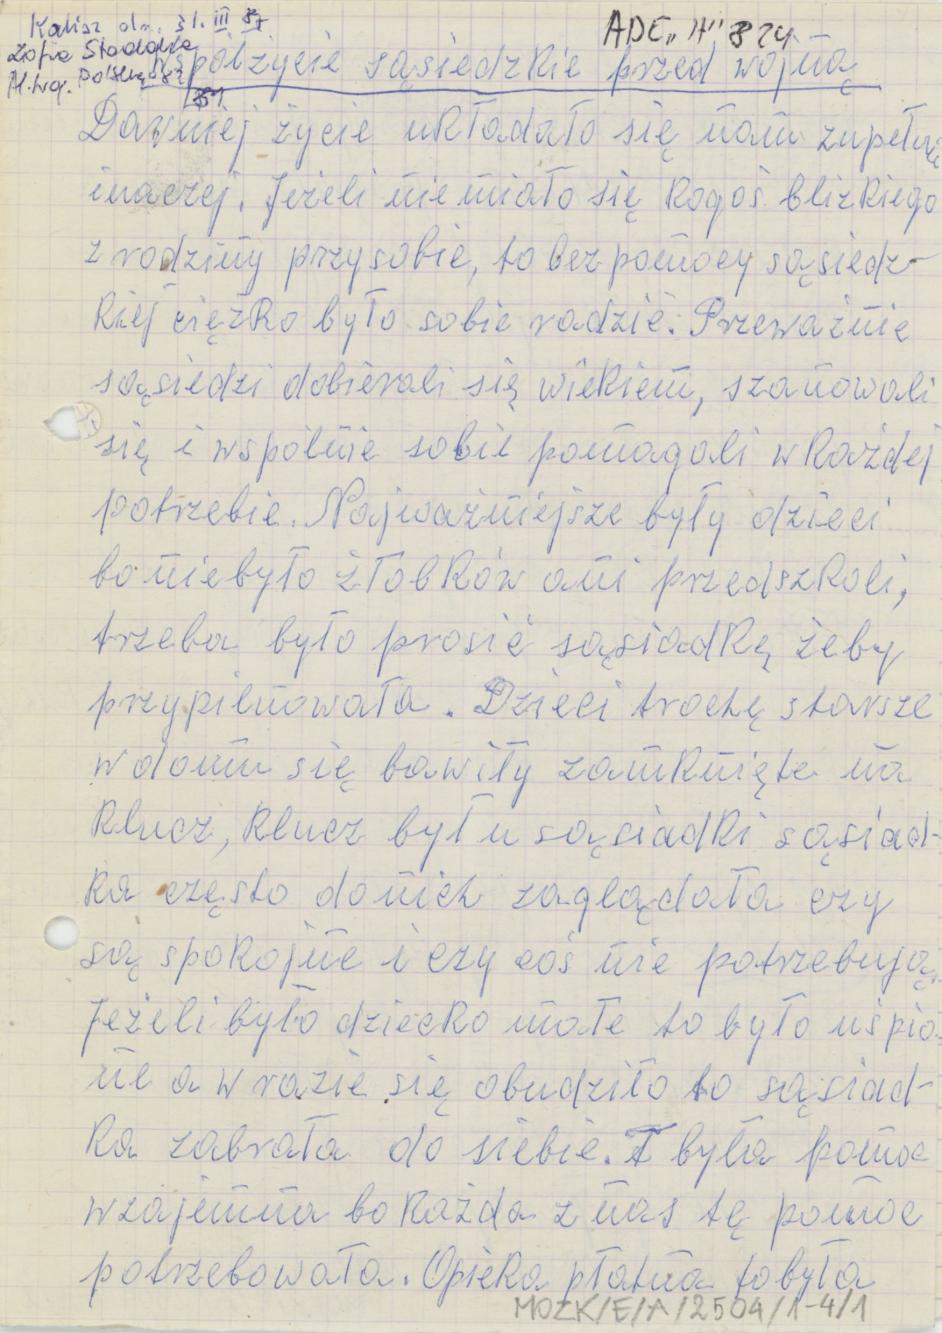 Kalisz dn. 31. III 87
ADE „H" 824
Zofia
Współżycie sąsiedzkie przed wojną
Al. Woj. Polskiego
Dawniej życie układało się nam zupełnie
inaczej. Jeżeli nie miało się kogoś blizkiego
z rodziny przy sobie, to bez pomocy sąsiedz-
kiej ciężko było sobie radzić. Przeważnie
sąsiedzi dobierali się wiekiem, szanowali
się i wspólnie sobie pomagali w każdej
potrzebie. Najważniejsze były dzieci
bo niebyło żłobków ani przedszkoli,
trzeba było prosić sąsiadkę żeby
przypilnowała. Dzieci trochę starsze
w domu się bawiły zamknięte na
klucz, klucz był u sąsiadki sąsiad-
ka często do nich zaglądała czy
są spokojne i czy coś nie potrzebują.
Jeżeli było dziecko małe to było uśpio-
ne a w razie się obudziło to sąsiad-
ka zabrała do siebie. I była pomoc
wzajemna bo każda z nas tę pomoc
potrzebowała. Opieka płatna to była
MOZK/E/A/2504/1-4/1